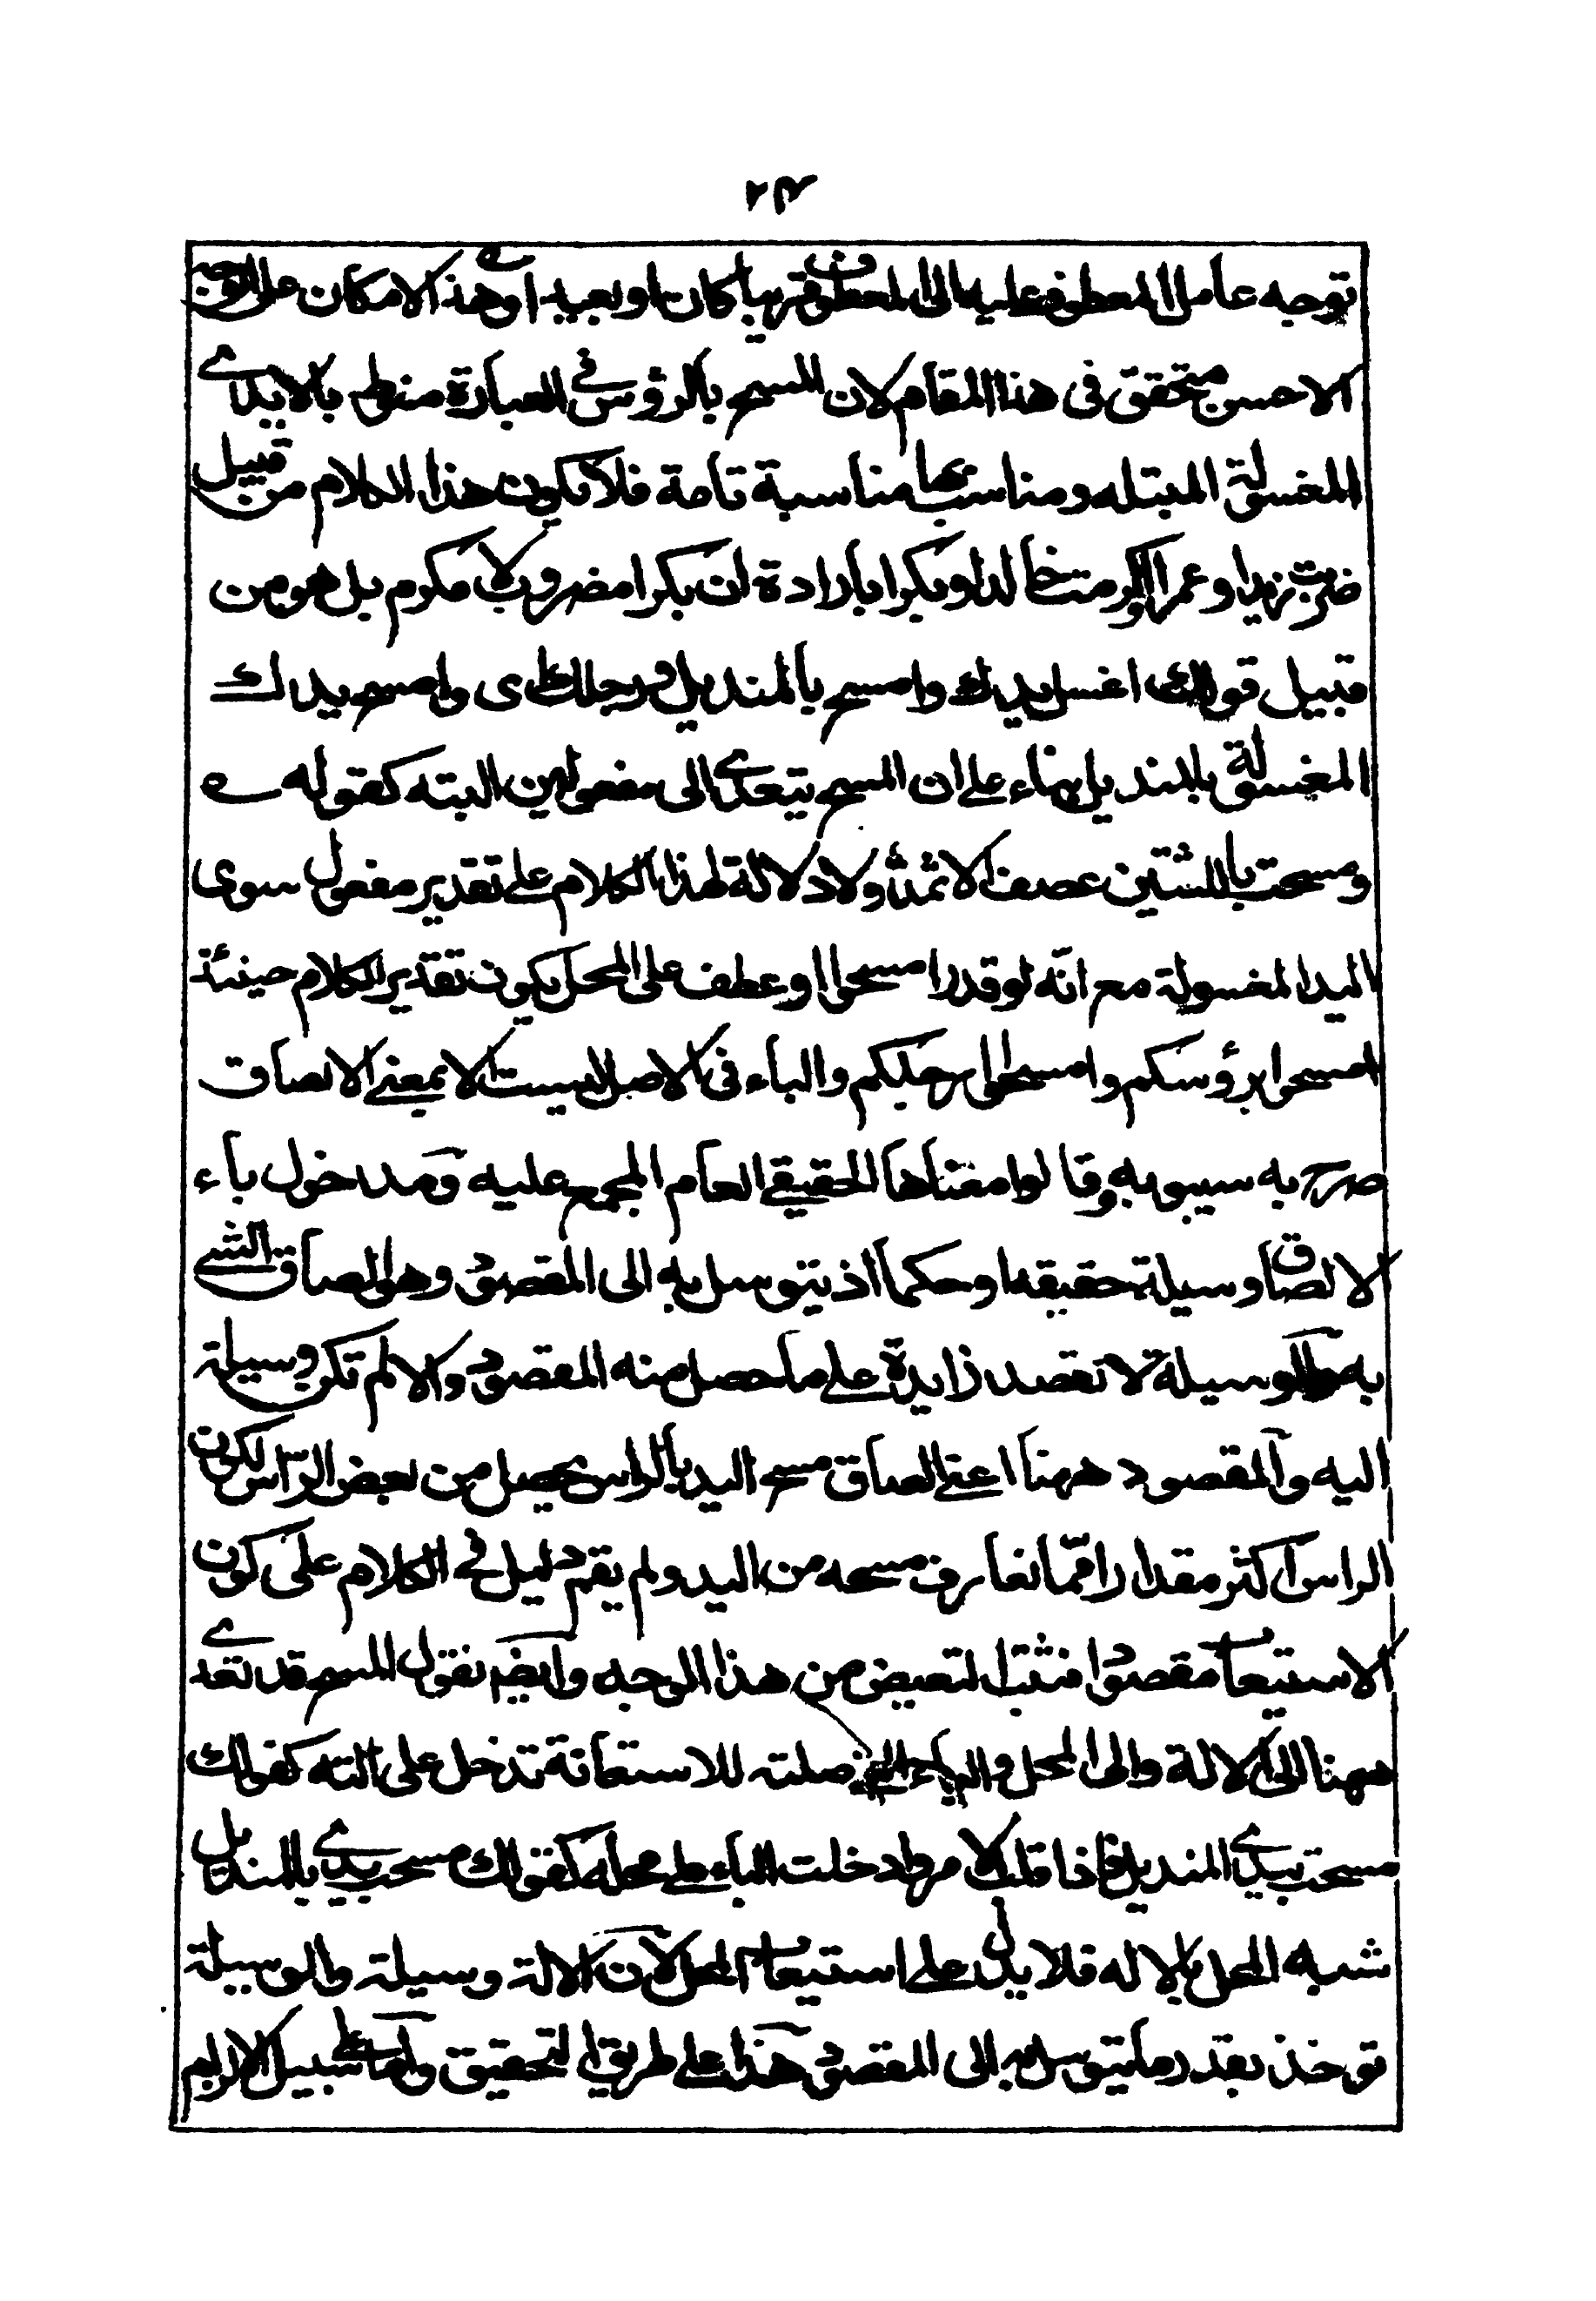 ٢٣
توجه عامل المعطوف عليه الى المعطوف قريبا كان او بعيدا وهذا الامكان على الوجه
الاحسن متحقق في هذا المقام لان المسح بالرؤس في العبارة منوط بالايدي
المغسولة المبتله ومناسب بها مناسبة تامة فلا يكون هذا الكلام من قبيل
ضربت زيدا وعمرا واكرمت خالدا وبكرا بارادة ان بكرا مضروب لا مكرم بل هو من
قبيل قولك اغسل يديك وامسح بالمنديل ورجلك اى وامسح يدك
المغسولة بالمنديل بناء على ان المسح يتعدى الى مفعولين البته كقوله
ومسحت باللثتين عصف الاثمد ولا دلالة لهذا الكلام على تقدير مفعول سوى
اليد المغسولة مع انه لو قدر امسحوا او عطف على المحل يكون تقدير الكلام حينئذ
امسحوا برؤسكم وامسحوا ارجلكم والباء في الاصل ليست الا بمعنى الالصاق
صرح به سيبويه وقالوا معناها الحقيقي العام المجمع عليه ومدخول باء
الالصاق وسيلة حقيقة او حكما اذ يتوسل به الى المقصود وهو الصاق الشي
به والوسيلة لا تقصد زايدة على ما حصل منه المقصود والا لم تكن وسيلة
اليه والمقصود ههنا اعني الصاق مسح اليد بالراس يحصل من بعض الراس لكون
الراس اكثر مقدارا مما تعارف مسحه من اليد ولم يقم دليل في الكلام على كون
الاستيعاب مقصودا فثبت التبعيض من هذا الوجه وايضا نقول المسح قد تعدى
ههنا الى الالة والى المحل والباء التي صلته للاستعانة تدخل على الته كقولك
مسحت بيدي المنديل فاذا قلب الامر وادخلت الباء على محله كقولك مسحت يدي بالمنديل
شبه المحل بالاله فلا يدل على استيعاب المحل لان الالة وسيلة والوسيلة
توخذ بقدر ما يتوسل به الى المقصود هذا على طريق التحقيق واما على سبيل الالزام